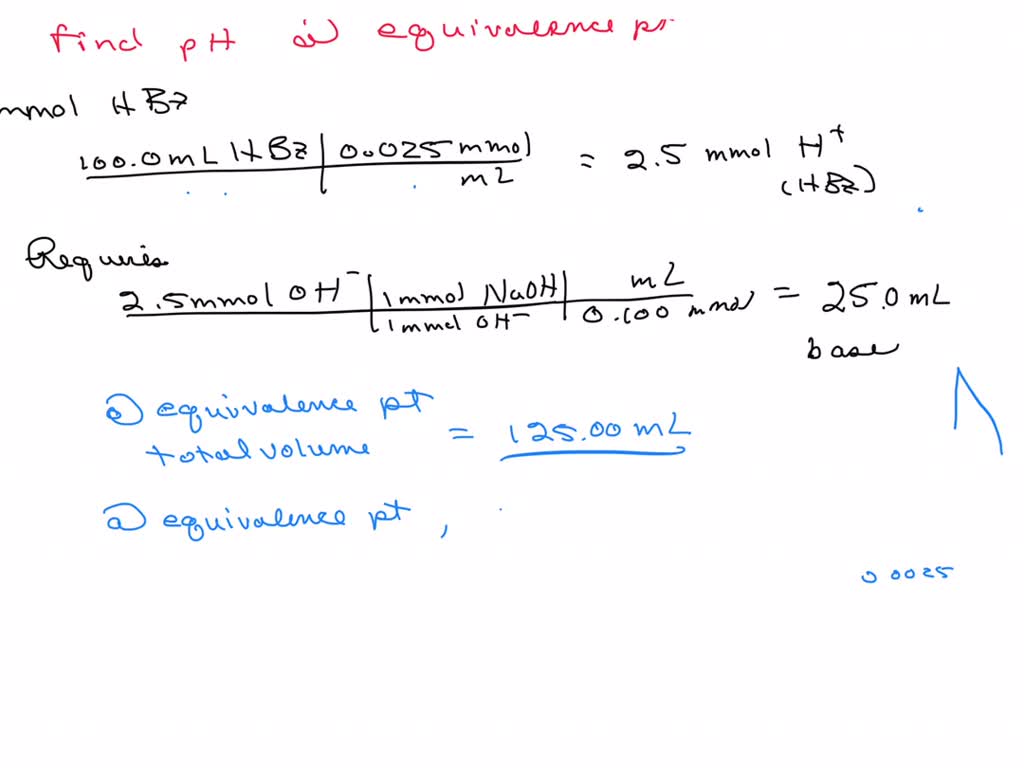 find pH @ equivalence pt
mmol HBz
100.0 mL HBz | 0.025 mmol / mL = 2.5 mmol H⁺
(HBz)
Requires
2.5 mmol OH⁻ | 1 mmol NaOH / 1 mmol OH⁻ | mL / 0.100 mmol = 25.0 mL
base
@ equivalence pt
total volume = 125.00 mL
@ equivalence pt ,
0.0025